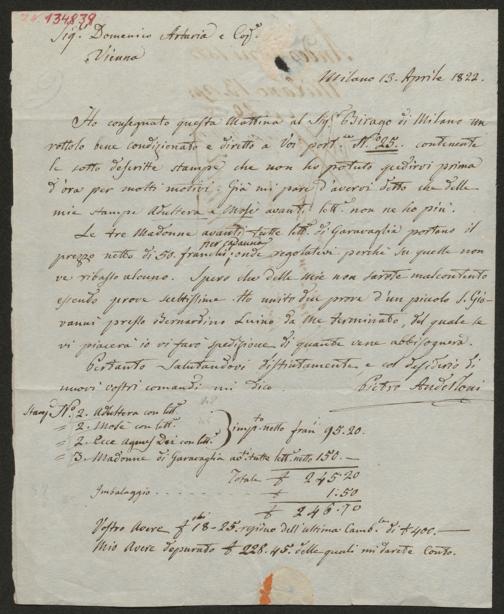 134839
Sig.r Domenico Artaria e Cop.
Vienna
Milano 13. Aprile 1822.
Ho consegnato questa Mattina al Sig.r Birago di Milano un
rottolo bene condizionato e diretto a Voi port.te N.o 25.. contenente
le sotto descritte stampe che non ho potuto spedirvi prima
d'ora per molti motivi; Già mi pare d'avervi detto che delle
mie stampe Adultera e Mosè avanti lett.e non ne ho più.
Le tre Madonne avanti tutte lett.e di Garavaglia portano il
per cadauna
prezzo netto di 50. franchi; onde regolativi perchè su quelle non
ve ribasso alcuno. Spero che delle Mie non sarete malcontento
essendo prove scieltissime. Ho unito due prove d'un piccolo S. Gio-
vanni presso Bernardino Luino, da Me terminato, del quale se
vi piacerà io vi farò spedizione di quante vene abbisognerà.
Pertanto Salutandovi distintamente e col desiderio di
nuovi vostri comandi mi dico. Pietro Anderloni
Stam.e N.o 2. Adultera con lett.e
" 2. Mosè con lett.e imp.to netto fran.i 95.20.
" 2. Ecce Agnus Dei con lett.e
" 3. Madonne di Garavaglia av.ti tutte lett.e netto 150.—
Totale f 245.20
Imballaggio . . . . . . . f 1.50
f 246.70
Vostro Avere f.chi 18-25. regiro dell'ultima Camb.le di f 400.—
Mio Avere depurato f 228.45. delle quali mi darete Conto.